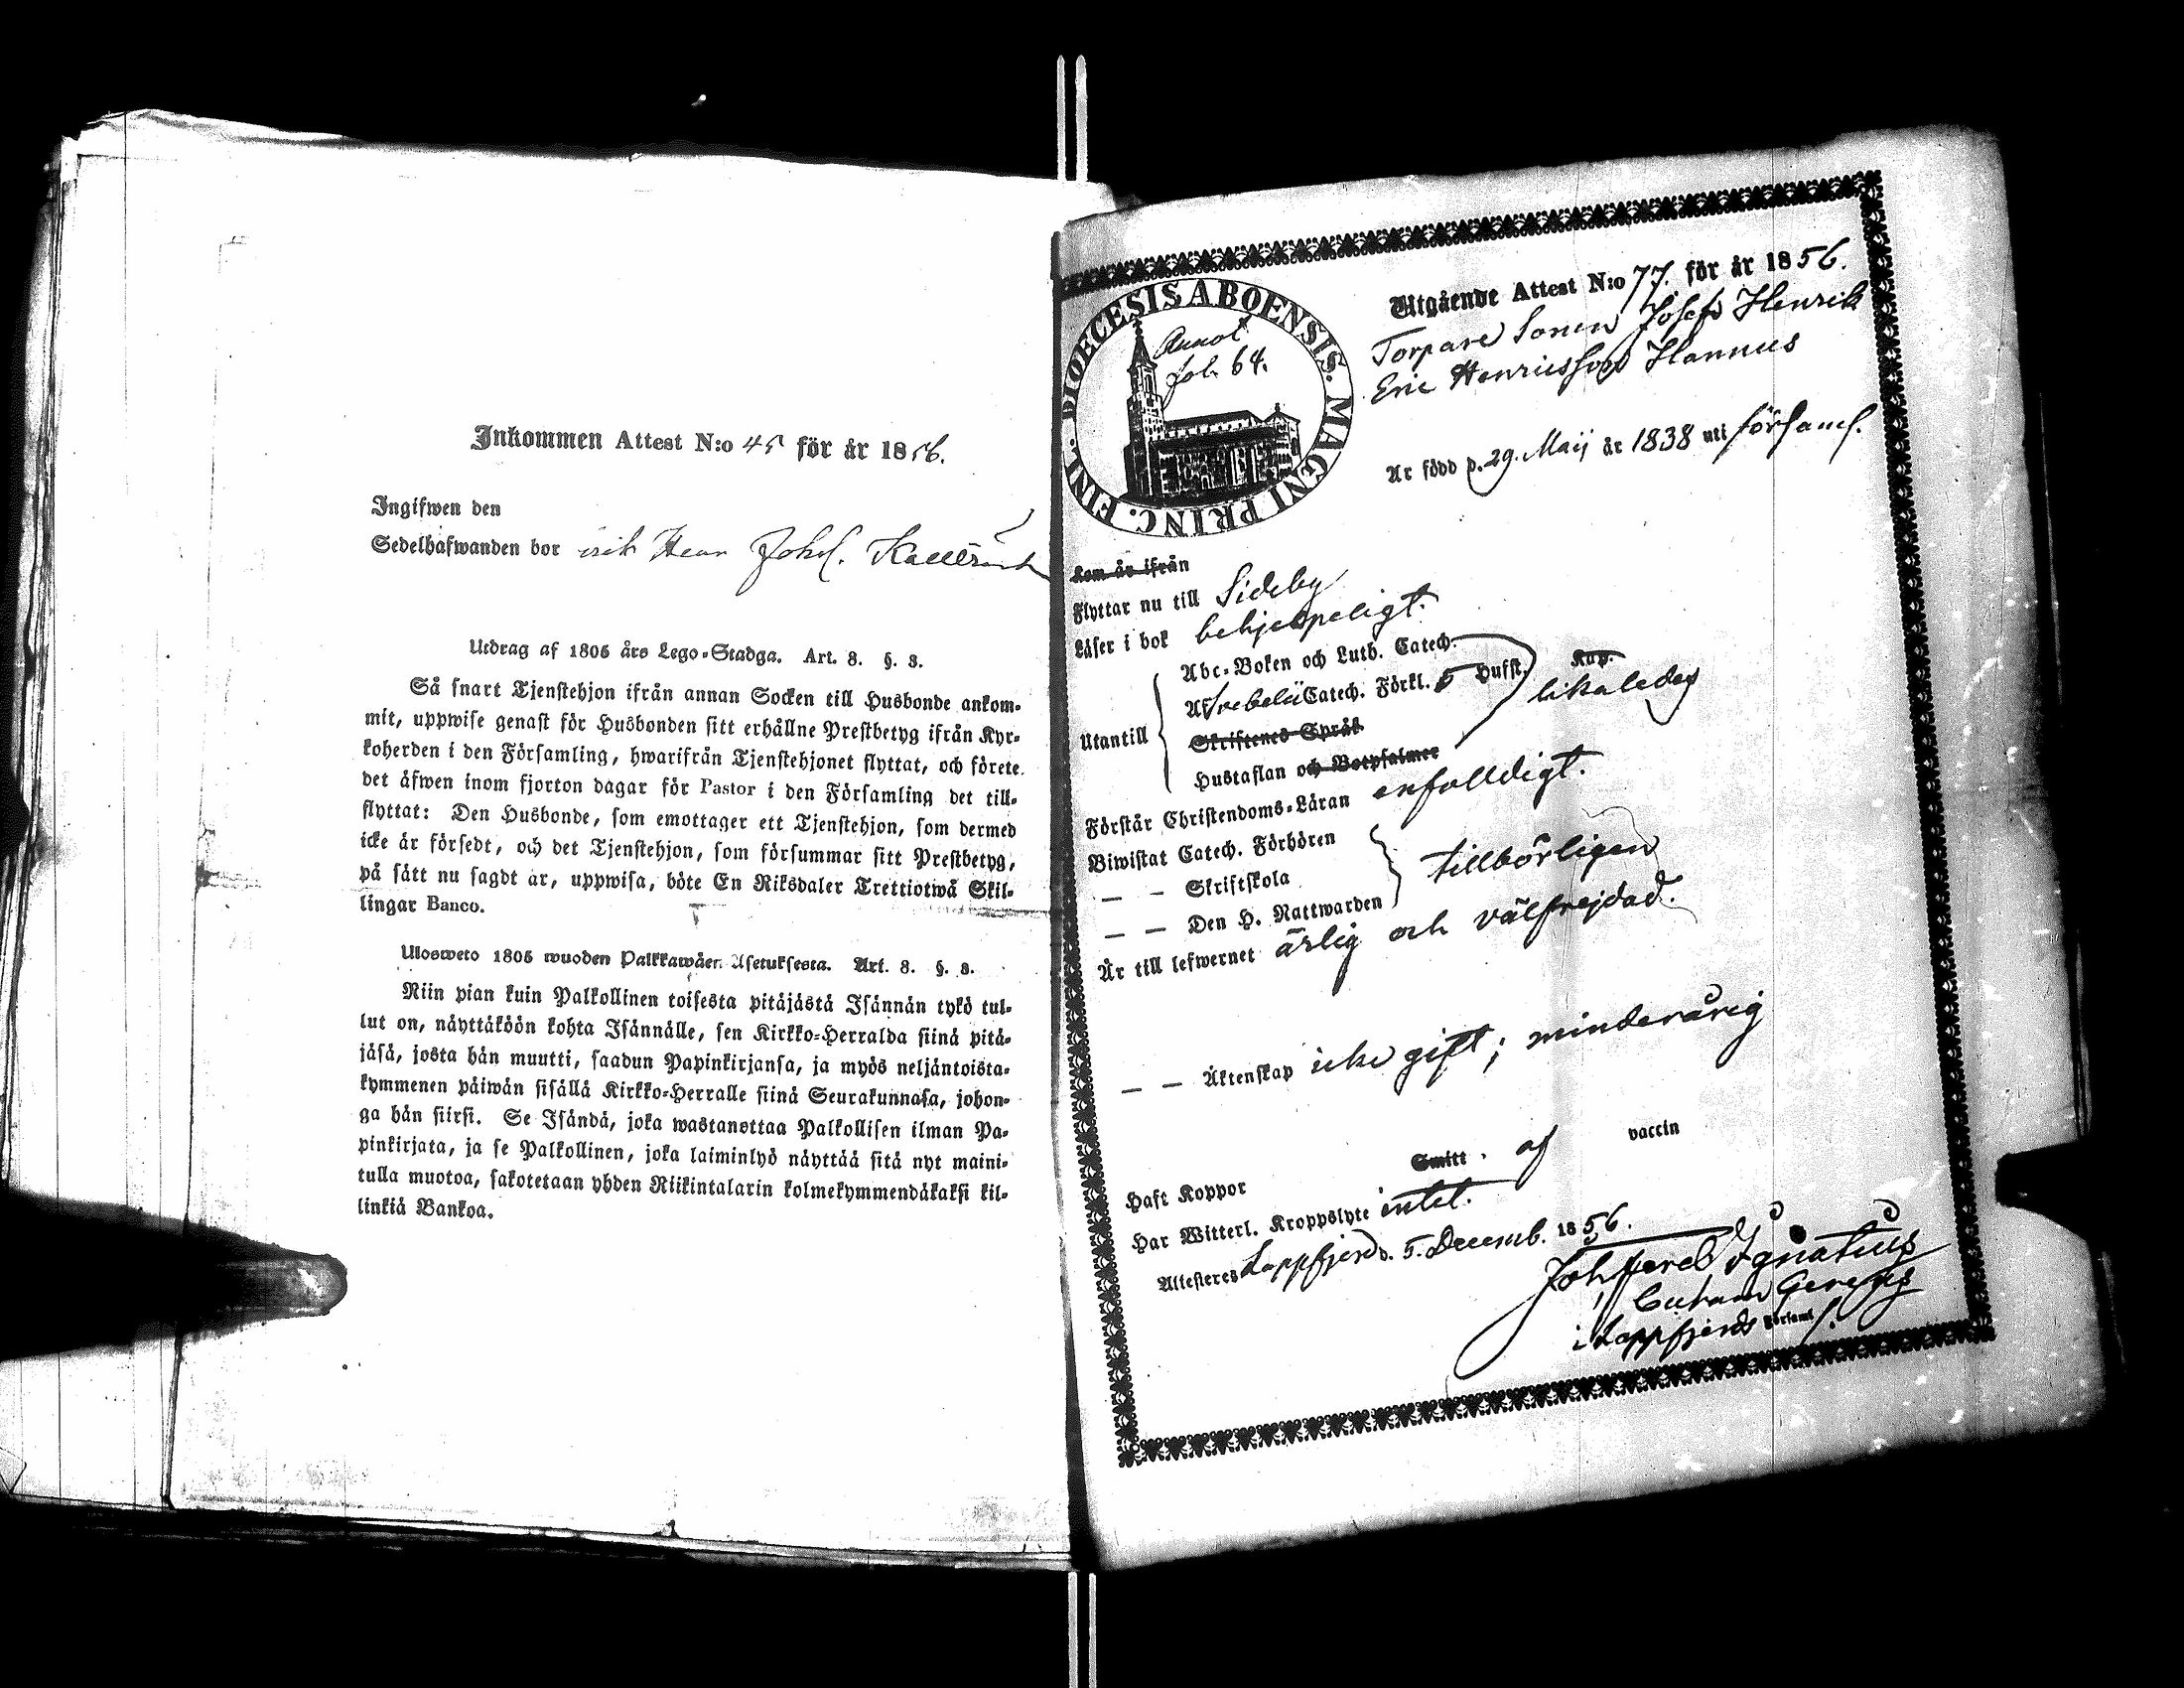 Inkommen Attest N:o 45 för år 1856.
Ingifwen den
Sedelhafwanden bor erik Henr Johs.
Utdrag af 1805 års Lego-Stadga. Art. 8. §. 3.
Så snart Tjenstehjon ifrån annan Socken till Husbonde ankom-
mit, uppwise genast för Husbonden sitt erhållne Prestbetyg ifrån Kyr-
koherden i den Församling, hwarifrån Tjenstehjonet flyttat, och förete
det äfwen inom fjorton dagar för Pastor i den Församling det till-
flyttat: Den Husbonde, som emottager ett Tjenstehjon, som dermed
icke är försedt, och det Tjenstehjon, som försummar sitt Prestbetyg,
på sätt nu sagdt är, uppwisa, böte En Riksdaler Trettiotwå Skil-
lingar Banco.
Ulosweto 1805 wuoden Palkkawäen Asetuksesta. Art. 8. §. 3.
Niin pian kuin Palkollinen toisesta pitäjästä Isännän tykö tul-
lut on, näyttäköön kohta Isännälle, sen Kirkko-Herralda siinä pitä-
jäsä, josta hän muutti, saadun Papinkirjansa, ja myös neljäntoista-
kymmenen päiwän sisällä Kirkko-Herralle siinä Seurakunnasa, johon-
ga hän siirsi. Se Isändä, joka wastanottaa Palkollisen ilman Pa-
pinkirjata, ja se Palkollinen, joka laiminlyö näyttää sitä nyt maini-
tulla muotoa, sakotetaan yhden Riikintalarin kolmekymmendäkaksi kil-
linkiä Bankoa.
DIOECESIS ABOENSIS. MAGNI PRINC. FINL.
Annot
fol. 64.
Utgående Attest N:o 77. för år 1856.
Torpare Sonen Josef Henrik
Eric Henricsson Hannus
Är född d. 29. Maij år 1838 uti förSaml.
Kom år ifrån
Flyttar nu till Sideby
Läser i bok behjelpeligt.
Utantill
Abc-Boken och Luth. Catech.
Af Catech. Förkl. 5 Hufst. Kap.
likaledes
Skriftenes Språk
Hustaflan och Botpsalmer
Förstår Christendoms-Läran enfalldigt.
Biwistat Catech. Förhören
— — Skriftskola tillbörligen
— — Den H. Nattwarden
Är till lefwernet ärlig och välfrejdad.
— — Äktenskap icke gift; minderårig
Haft Koppor Smitt. af vaccin
Har Witterl. Kroppslyte intet.
Attesteres Lappfjerd d. 5. Decemb. 1856.
Joh Ignatius
i Lappfjerds Församl.